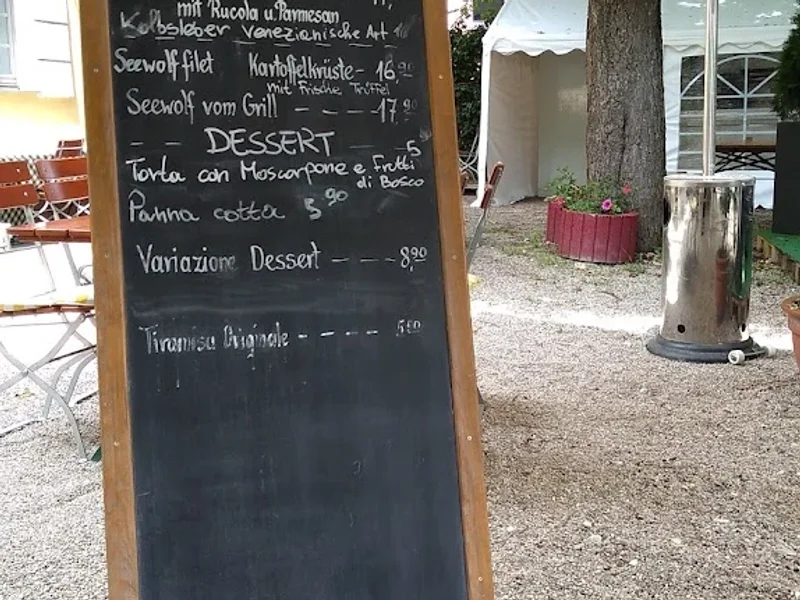 mit Rucola u. Parmesan
Kalbsleber Venezianische Art
Seewolffilet Kartoffelkrüste - 16,90
mit Frische Trüffel
Seewolf vom Grill - - - 17,90
- - DESSERT - -
Torta con Moscarpone e Frutti 5
di Bosco
Panna cotta 5,90
Variazione Dessert - - - 8,90
Tiramisu Originale - - - -